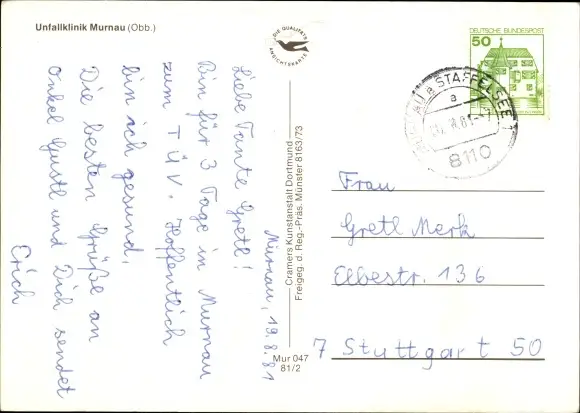 Unfallklinik Murnau (Obb.)
DIE QUALITÄTS
ANSICHTSKARTE
DEUTSCHE BUNDESPOST
50
a STAFFELSEE 1
a
8110
Murnau, 19.8.81
Liebe Tante Gretl!
Bin für 3 Tage in Murnau
zum TÜV. Hoffentlich
bin ich gesund.
Die besten Grüße an
Onkel Gustl und Dich sendet
Erich
Cramers Kunstanstalt Dortmund
Freigeg. d. Reg.-Präs. Münster 8163/73
Mur 047
81/2
Frau
Gretl Merk
Elbestr. 136
7 Stuttgart 50